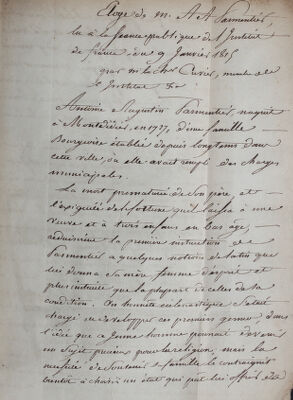 Eloge de M. A A Parmentier,
lu à la séance publique de l'Institut
de france, du 9 Janvier 1815
par M. le Cher Cuvier, membre de
l'Institut &c
Antoine Augustin Parmentier, naquit
à Montdidier, en 1737, d'une famille
Bourgeoise établie depuis longtems dans
cette ville, où elle avait rempli des charges
municipales.
La mort prematurée de son père et
l'exiguité de la fortune qu'il laissa à une
veuve et à trois enfans en bas âge,
réduisirent la première instruction de
Parmentier à quelques notions de latin que
lui donna sa mère femme d'esprit et
plus instruite que la plupart de celles de sa
condition. Un honnête ecclesiastique s'était
chargé de developper ces premiers germes dans
l'idée que ce jeune homme pourrait devenir
un sujet précieux pour la religion, mais la
necessité de soutenir sa famille le contraignit
bientôt à choisir un état qui put lui offrir des